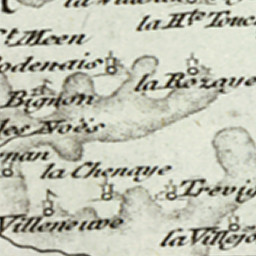 la Hte Touc
St Meen
odenais
la Rozaye
Bignon
les Noës
rnan
la Chenaye
Trevig
Villeneuve
la Villejo